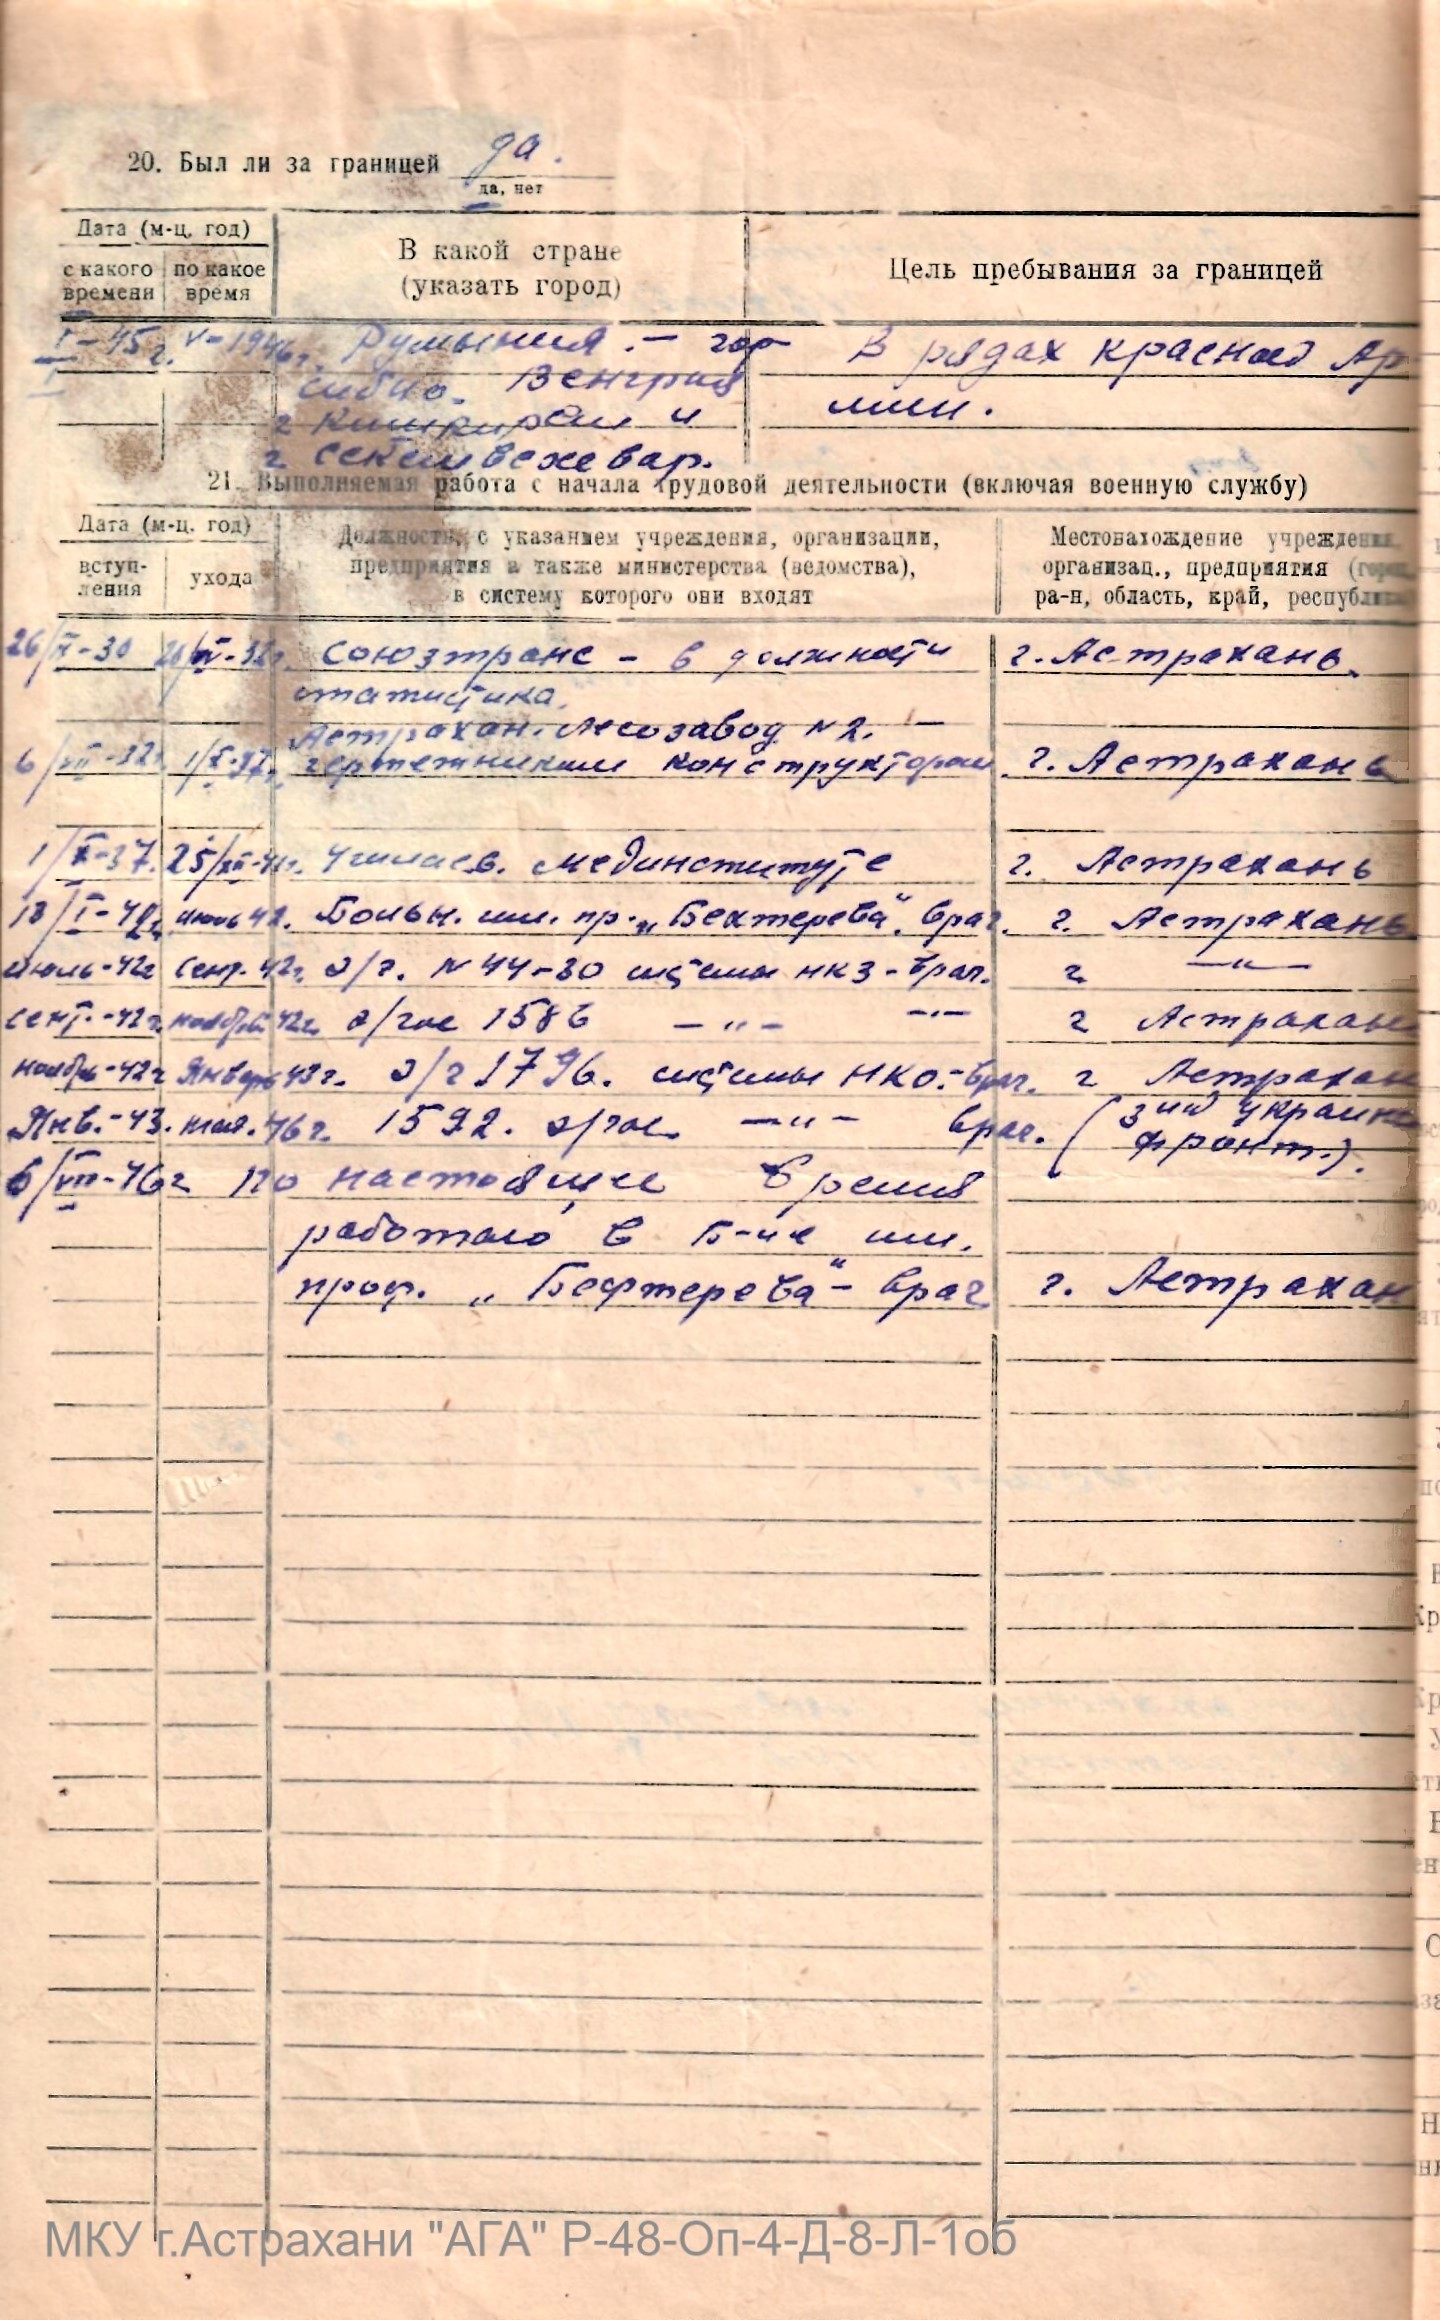 20. Был ли за границей да.
да, нет
Дата (м-ц, год)
с какого времени
по какое время
В какой стране
(указать город)
Цель пребывания за границей
I-45г. V-1946г. Румыния.- гор В рядах красной Ар
сибио. Венгрия мии.
г
г Секешвехевар.
21. Выполняемая работа с начала трудовой деятельности (включая военную службу)
Дата (м-ц. год)
вступ-
ления
ухода
Должность, с указанием учреждения, организации,
предприятия а также министерства (ведомства),
в систему которого они входят
Местонахождение учреждения,
организац., предприятия (город,
ра-н, область, край, республика
26/IX-30 Союзтранс - в должности г. Астрахань.
статистика.
Астрахан. Лесозавод N2. -
6/VII-32г 1/X-37. чертежником конструктором г. Астрахань
1/X-37. 25/XII-41г. Училась в. мединституте г. Астрахань
13/I-42г июль 42. Больн. им. пр. „Бехтерева". врач. г. Астрахань
июль-42г сент. 42г. э/г. N 44-30 системы НКЗ-врач. г —"—
сент.-42г. ноябрь 42г. э/гос 1586 —"— —"— г Астрахань
ноябрь-42г Январь 43г. э/г 1796. системы НКО.-врач. г Астрахан
Янв.-43. мая. 46г. 1592. э/гос. —"— врач. (3ий Украинс
фронт.).
6/VII-46г по настоящее время
работаю в Б-це им.
проф. „Бефтерева"- врач г. Астрахан
МКУ г.Астрахани "АГА" Р-48-Оп-4-Д-8-Л-1об